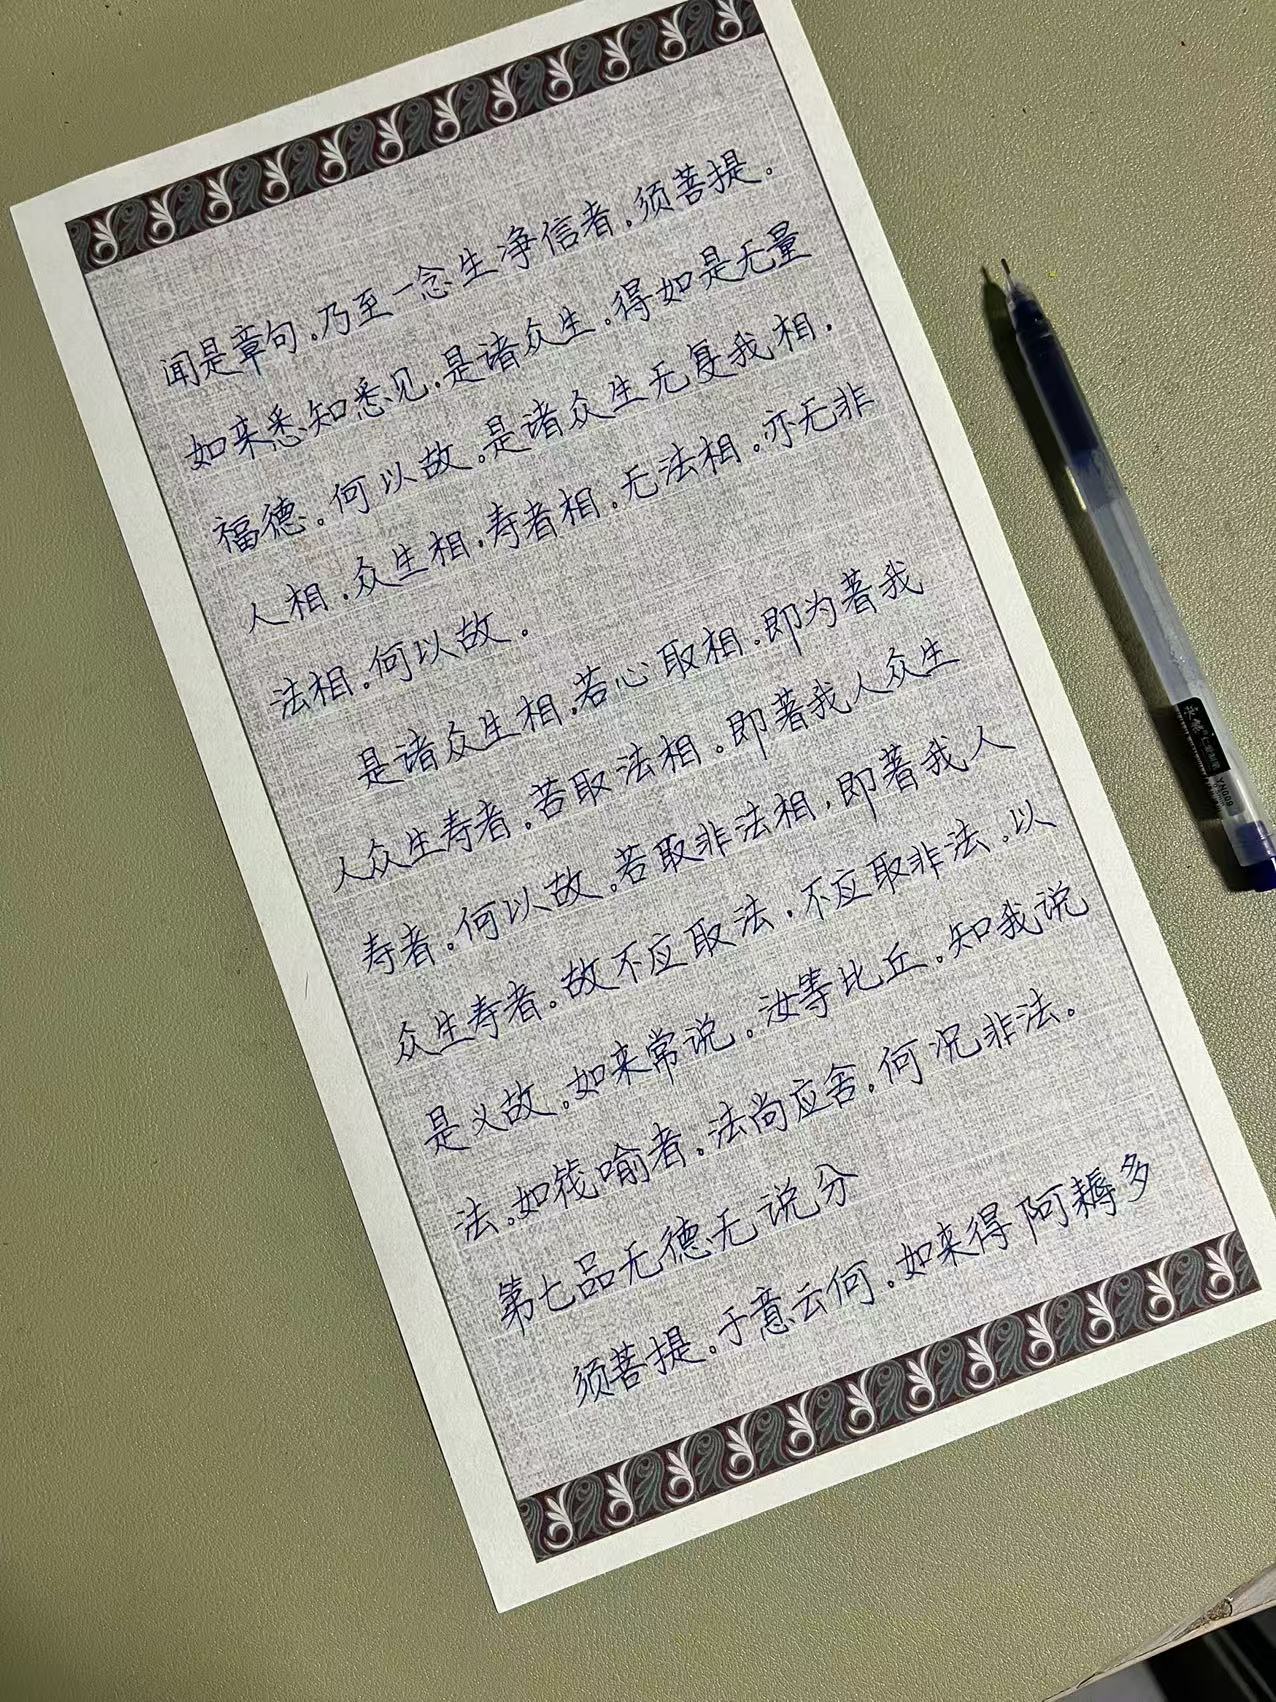 闻是章句。乃至一念生净信者。须菩提。
如来悉知悉见。是诸众生。得如是无量
福德。何以故。是诸众生无复我相。
人相。众生相。寿者相。无法相。亦无非
法相。何以故。
是诸众生相。若心取相。即为著我
人众生寿者。若取法相。即著我人众生
寿者。何以故。若取非法相，即著我人
众生寿者。故不应取法，不应取非法。以
是义故。如来常说。汝等比丘。知我说
法。如筏喻者。法尚应舍。何况非法。
第七品无德无说分
须菩提。于意云何。如来得阿耨多
YN009